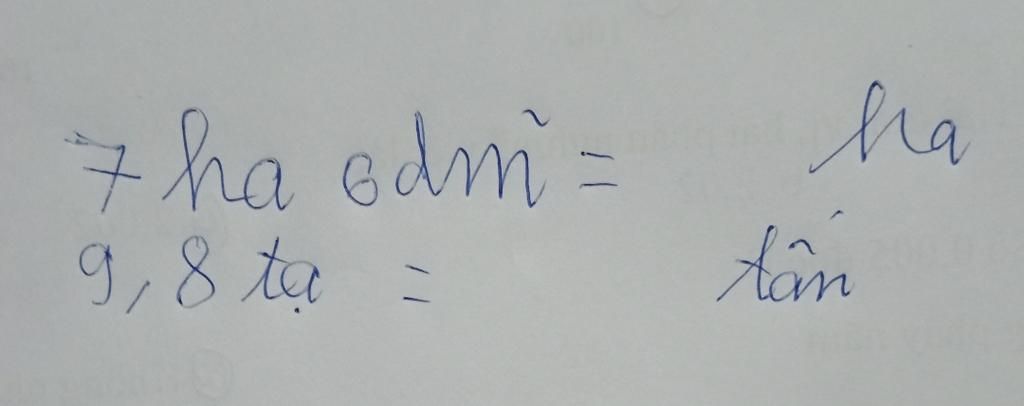 7 ha 6dm² = ha
9,8 tạ = tấn